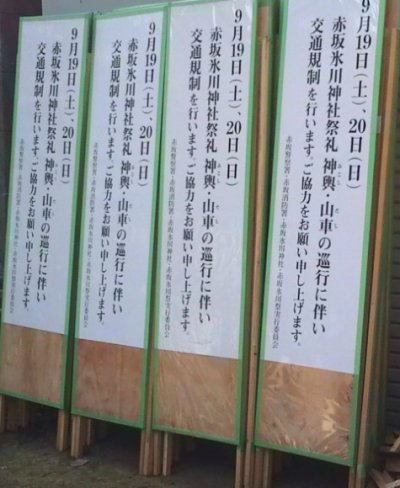 9月19日(土)、20日(日)
赤坂氷川神社祭礼 神輿・山車の巡行に伴い
みこし だし
交通規制を行います。ご協力をお願い申し上げます。
赤坂警察署・赤坂消防署・赤坂氷川神社・赤坂氷川祭実行委員会
9月19日(土)、20日(日)
赤坂氷川神社祭礼 神輿・山車の巡行に伴い
みこし だし
交通規制を行います。ご協力をお願い申し上げます。
赤坂警察署・赤坂消防署・赤坂氷川神社・赤坂氷川祭実行委員会
9月19日(土)、20日(日)
赤坂氷川神社祭礼 神輿・山車の巡行に伴い
みこし だし
交通規制を行います。ご協力をお願い申し上げます。
赤坂警察署・赤坂消防署・赤坂氷川神社・赤坂氷川祭実行委員会
9月19日(土)、20日(日)
赤坂氷川神社祭礼 神輿・山車の巡行に伴い
みこし だし
交通規制を行います。ご協力をお願い申し上げます。
赤坂警察署・赤坂消防署・赤坂氷川神社・赤坂氷川祭実行委員会